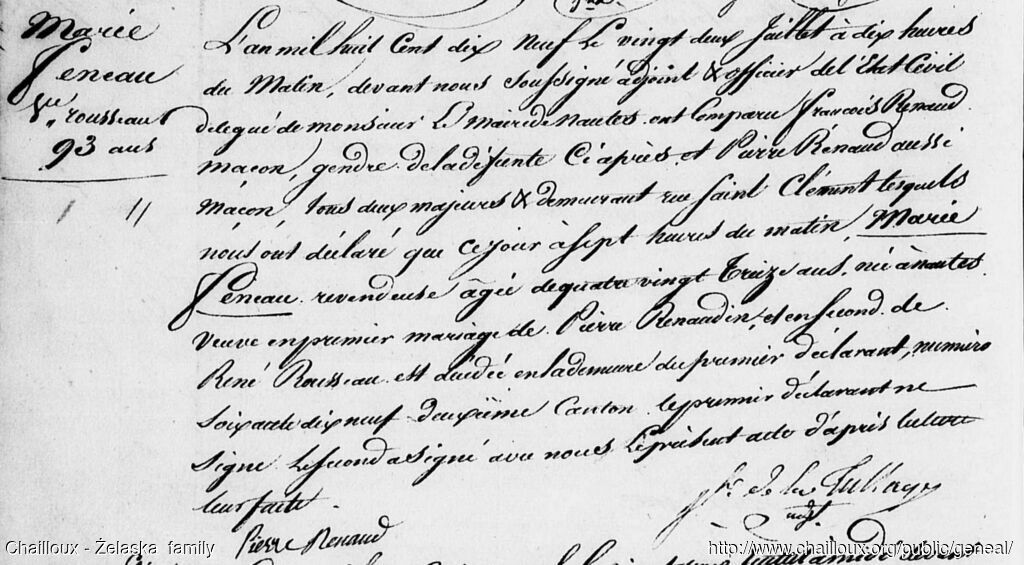 Marie
Feneau
Ve. rousseau
93 ans
L'an mil huit Cent dix Neuf Le vingt deux Juillet à dix heures
du Matin, devant nous Soussigné adjoint & officier de l'Etat Civil
délégué de monsieur Le Maire de nantes. ont Comparu françois Renaud
maçon, gendre de la défunte Ci après, et Pierre Rénaud aussi
maçon, tous deux majeures & demeurant rue Saint Clément lesquels
nous ont déclaré que ce jour à sept heures du matin, Marie
Feneau. revendeuse âgée de quatre vingt Treize ans. née à nantes.
Veuve en premier mariage de Pierre Renaudin, et en second. de
René Rousseau. est décédée en la demeure du premier déclarant, numéro
Soixante dix neuf Deuxième Canton. le premier déclarant ne
Signe Le Second a Signé avec nous Le présent acte d'après lecture
leur faite.
de la Tullaye
adjt.
Pierre Renaud
Chailloux - Żelaska family
http://www.chailloux.org/public/geneal/